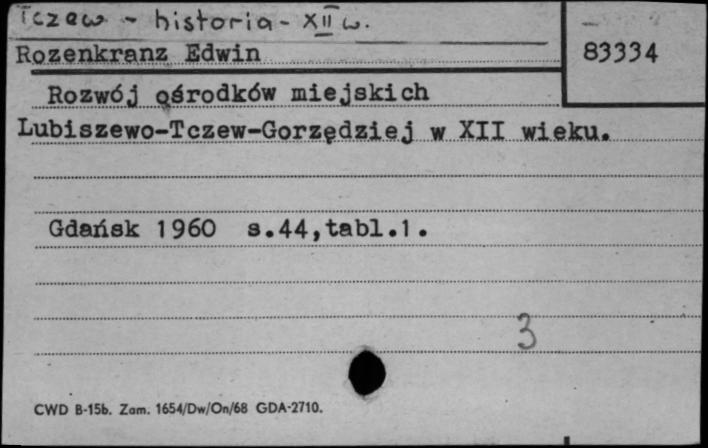 Tczew - historia - XII w.
Rozenkranz Edwin
83334
Rozwój ośrodków miejskich
Lubiszewo-Tczew-Gorzędziej w XII wieku.
Gdańsk 1960 s.44,tabl.1.
3
CWD B-15b. Zam. 1654/Dw/On/68 GDA-2710.